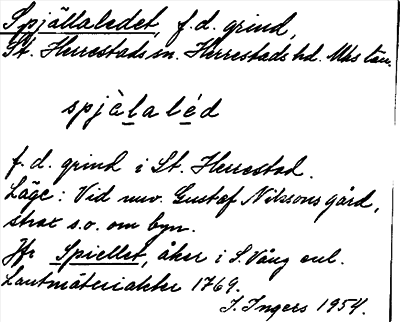 Spjällaledet, f.d. grind,
St. Herrestads sn. Herrestads hd. Mhs län.
spjèlaléd
f.d. grind i St. Herrestad.
Läge: Vid nuv. Gustaf Nilssons gård,
strax s.o. om byn.
Jfr Spiellet, åker i S. Vång enl.
Lantmäteriakter 1769.
I. Ingers 1954.